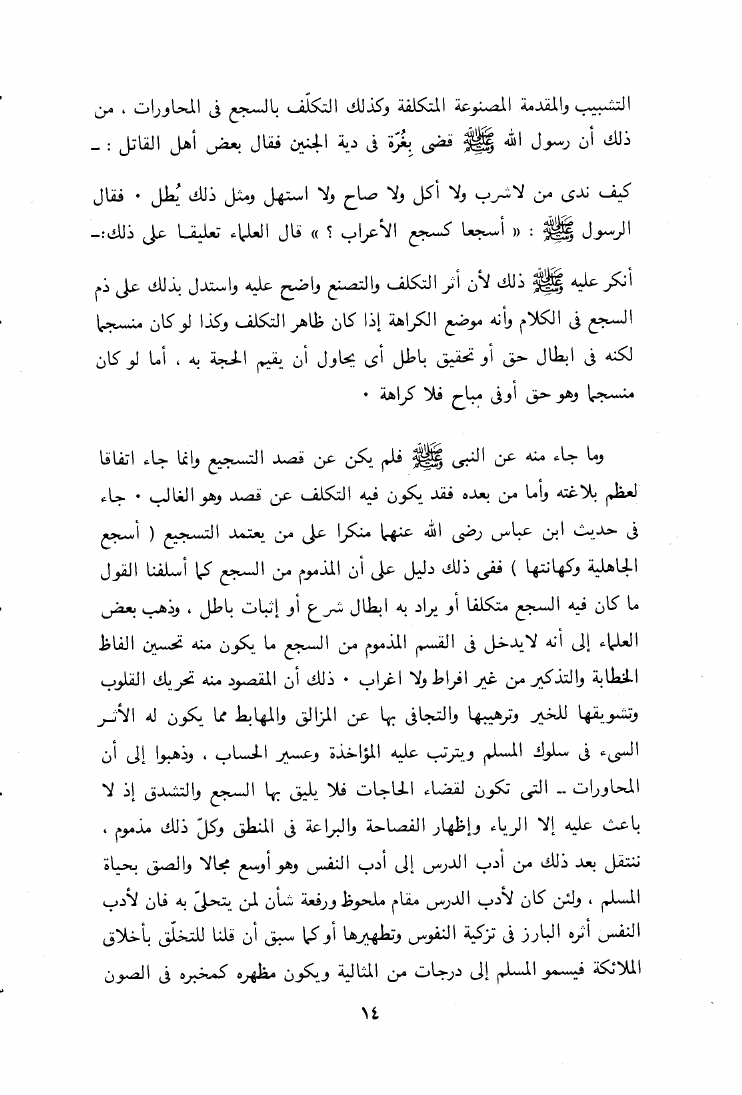 التشبيب والمقدمة المصنوعة المتكلفة وكذلك التكلّف بالسجع فى المحاورات ، من
ذلك أن رسول الله ﷺ قضى بِغُرّة فى دية الجنين فقال بعض أهل القاتل : ـ
كيف ندى من لاشرب ولا أكل ولا صاح ولا استهل ومثل ذلك يُطل ٠ فقال
الرسول ﷺ : « أسجعا كسجع الأعراب ؟ » قال العلماء تعليقا على ذلك:ـ
أنكر عليه ﷺ ذلك لأن أثر التكلف والتصنع واضح عليه واستدل بذلك على ذم
السجع فى الكلام وأنه موضع الكراهة إذا كان ظاهر التكلف وكذا لو كان منسجما
لكنه فى ابطال حق أو تحقيق باطل أى يحاول أن يقيم الحجة به ، أما لو كان
منسجما وهو حق أوفى مباح فلا كراهة ٠
وما جاء منه عن النبى ﷺ فلم يكن عن قصد التسجيع وانما جاء اتفاقا
لعظم بلاغته وأما من بعده فقد يكون فيه التكلف عن قصد وهو الغالب ٠ جاء
فى حديث ابن عباس رضى الله عنهما منكرا على من يعتمد التسجيع ( أسجع
الجاهلية وكهانتها ) ففى ذلك دليل على أن المذموم من السجع كما أسلفنا القول
ما كان فيه السجع متكلفا أو يراد به ابطال شرع أو إثبات باطل ، وذهب بعض
العلماء إلى أنه لايدخل فى القسم المذموم من السجع ما يكون منه تحسين الفاظ
الخطابة والتذكير من غير افراط ولا اغراب ٠ ذلك أن المقصود منه تحريك القلوب
وتشويقها للخير وترهيبها والتجافى بها عن المزالق والمهابط مما يكون له الأثر
السىء فى سلوك المسلم ويترتب عليه المؤاخذة وعسير الحساب ، وذهبوا إلى أن
المحاورات ـ التى تكون لقضاء الحاجات فلا يليق بها السجع والتشدق إذ لا
باعث عليه إلا الرياء وإظهار الفصاحة والبراعة فى المنطق وكلّ ذلك مذموم ،
ننتقل بعد ذلك من أدب الدرس إلى أدب النفس وهو أوسع مجالا والصق بحياة
المسلم ، ولئن كان لأدب الدرس مقام ملحوظ ورفعة شأن لمن يتحلىّ به فان لأدب
النفس أثره البارز فى تزكية النفوس وتطهيرها أو كما سبق أن قلنا للتخلّق بأخلاق
الملائكة فيسمو المسلم إلى درجات من المثالية ويكون مظهره كمخبره فى الصون
١٤